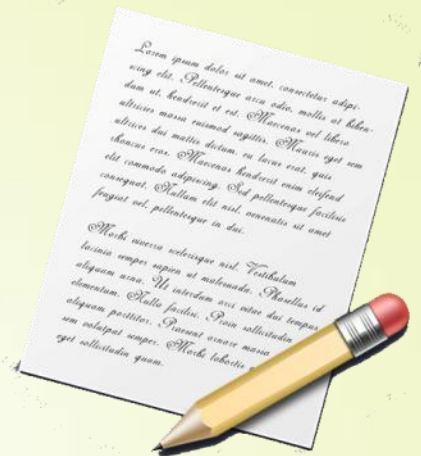 Lorem ipsum dolor sit amet, consectetur adipi-
scing elit. Pellentesque arcu odio, mollis at biben-
dum ut, hendrerit et est. Maecenas vel libero
ultricies massa euismod sagittis. Mauris eget sem
ultrices dui mattis dictum, eu lacus erat, quis
rhoncus eros. Maecenas hendrerit enim eleifend
elit commodo adipiscing. Sed pellentesque facilisis
consequat. Nullam elit nisl, venenatis sit amet
feugiat vel, pellentesque in dui.
Morbi viverra scelerisque nisl. Vestibulum
lacinia semper sapien ut malesuada. Phasellus id
aliquam urna. Ut interdum orci vitae dui tempus
elementum. Nulla facilisi. Proin sollicitudin
aliquam porttitor. Praesent ornare massa
sem volutpat semper. Morbi lobortis
eget sollicitudin quam.